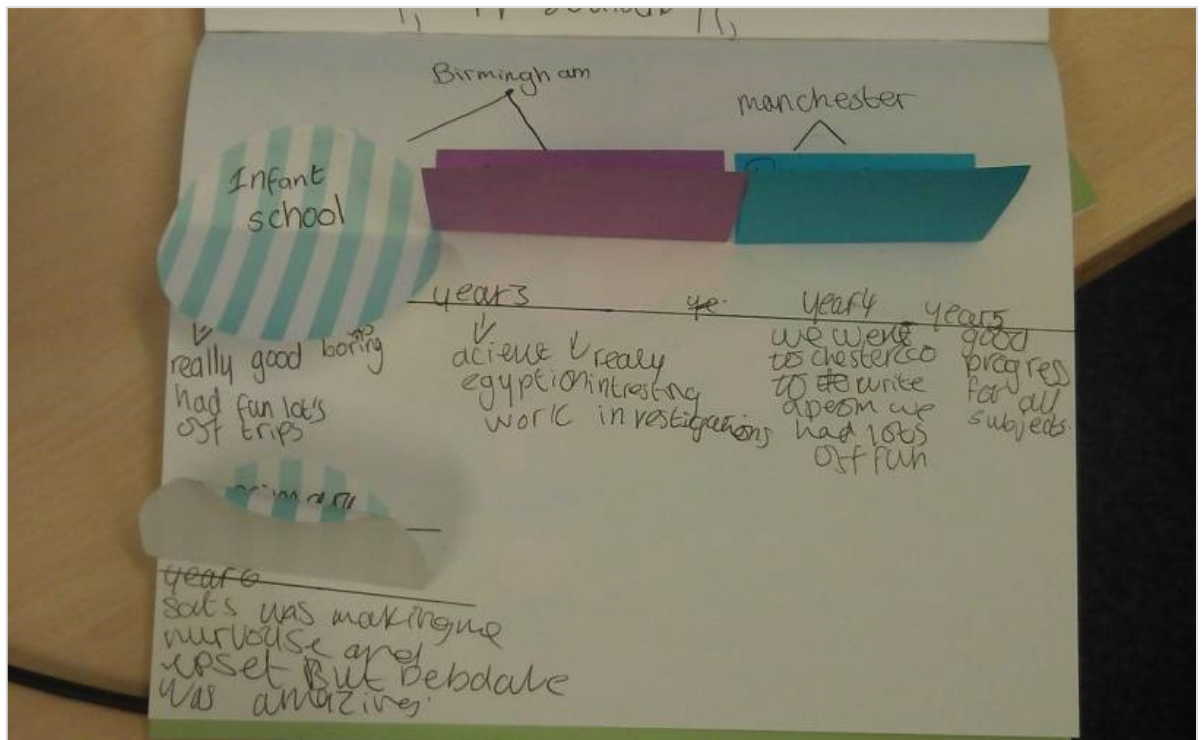 Birmingham
manchester
Infant
school
year3
year4
year5
really good boring
had fun lot's
off trips
acient
egyption
work
realy
intresting
investigations
we went
to chester
to write
a peom we
had lots
off fun
good
progress
for all
subjects.
primary
year 6
sats was making me
nurvouse and
upset But Debdale
was amazing.